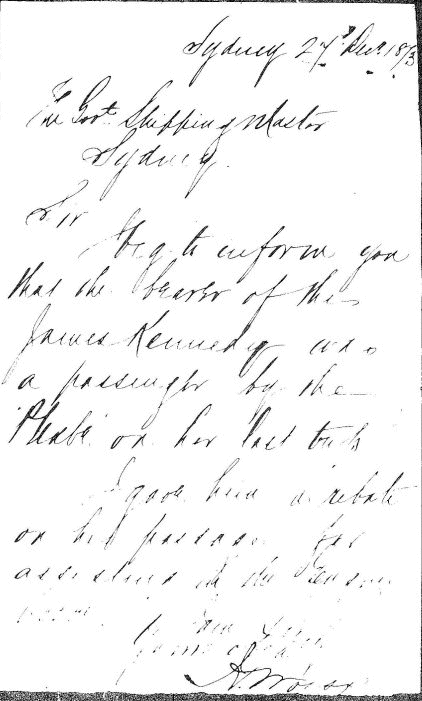 Sydney 27th Decr. 1873
The Govt Shipping Master
Sydney.
Sir
I beg to inform you
that the bearer of the
James Kennedy was
a passenger by the
on her last trip
I gave him a rebate
on his passage for
assisting in the
room.